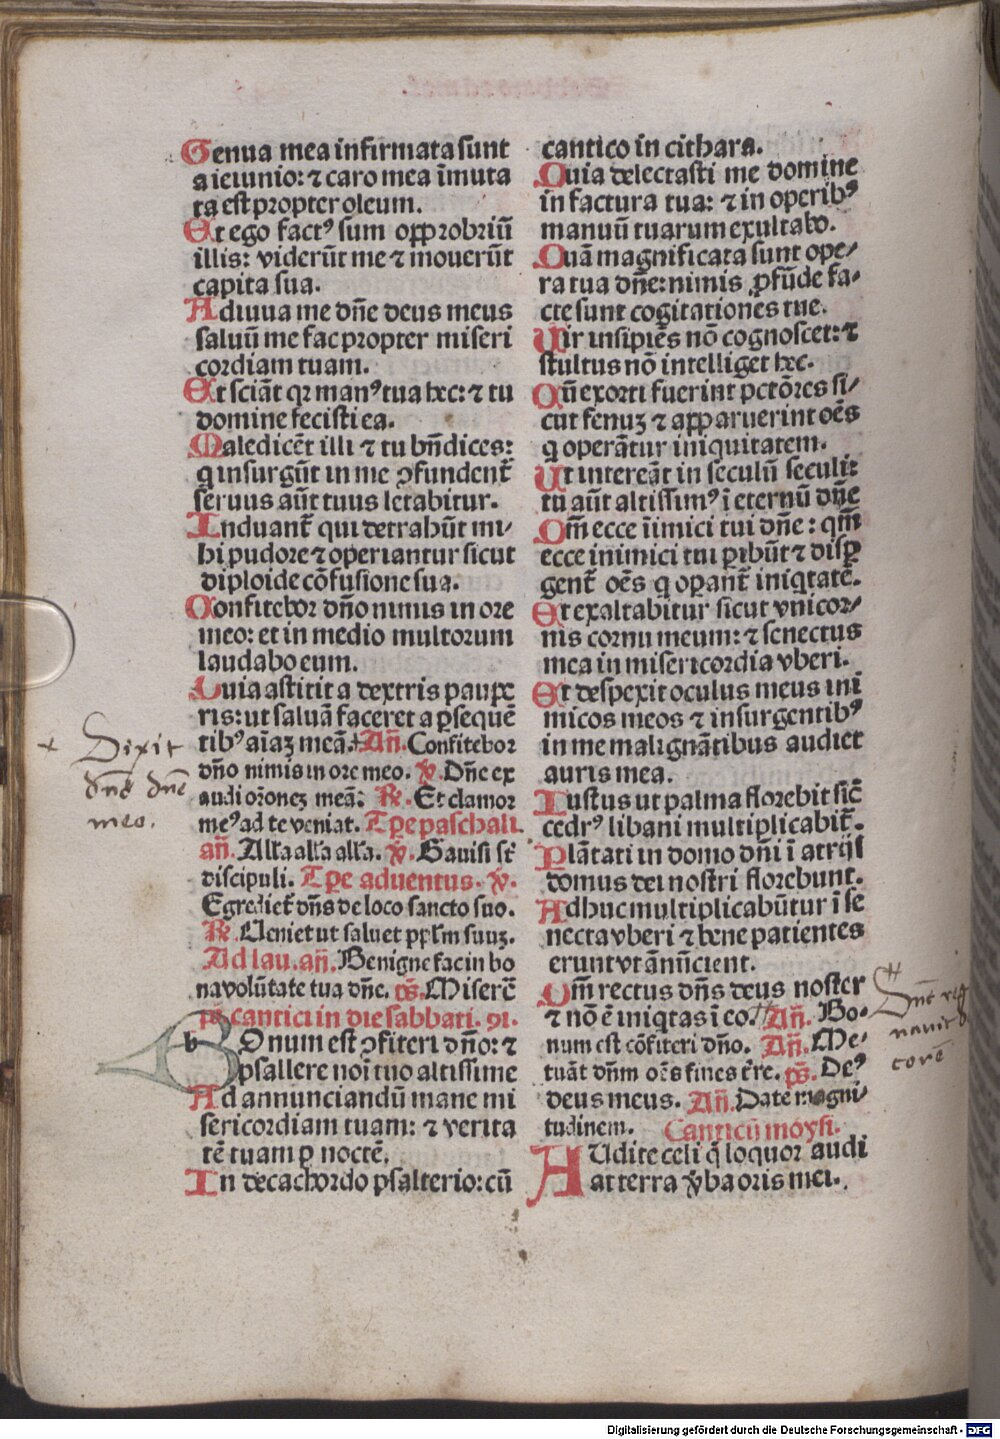 Genua mea infirmata sunt
a ieiunio: ⁊ caro mea īmuta
ta est propter oleum.
Et ego factꝰ sum opprobriū
illis: viderūt me ⁊ mouerūt
capita sua.
Adiuua me dn̄e deus meus
saluū me fac propter miseri
cordiam tuam.
Et sciāt qꝛ manꝰ tua hec: ⁊ tu
domine fecisti ea.
Maledicēt illi ⁊ tu bn̄dices:
q̄ insurgūt in me ꝯfundent̄
seruus aūt tuus letabitur.
Induant̄ qui detrahūt mi⸗
hi pudore ⁊ operiantur sicut
diploide cōfusione sua.
Confitebor dn̄o nimis in ore
meo: et in medio multorum
laudabo eum.
Quia astitit a dextris paupe
ris: ut saluā faceret a ꝑsequē
tibꝰ aīaꝫ meā. An̄. Confitebor
dn̄o nimis in ore meo. ℣. Dn̄e ex
audi or̄oneꝫ meā: ℟. Et clamor
meꝰ ad te veniat. Tp̄e paschali.
an̄. Alľa alľa alľa. ℣. Gauisi sť
discipuli. Tp̄e aduentus. ℣.
Egrediet̄ dn̄s de loco sancto suo.
℟. Ueniet ut saluet ppľm suuꝫ.
Ad lau. an̄. Benigne fac in bo
na volūtate tua dn̄e. ps̄. Miserē
ps̄. cantici in die sabbati. 91.
BOnum est ꝯfiteri dn̄o: ⁊
psallere noī tuo altissime
Ad annunciandū mane mi
sericordiam tuam: ⁊ verita
tē tuam ꝑ noctē.
In decachordo psalterio: cū
Dixit
dn̄s dn̄e
meo.
cantico in cithara.
Quia delectasti me domine
in factura tua: ⁊ in operibꝰ
manuū tuarum exultabo.
Quā magnificata sunt ope⸗
ra tua dn̄e: nimis ꝓfūde fa⸗
cte sunt cogitationes tue.
Uir insipiēs nō cognoscet: ⁊
stultus nō intelliget hec.
Qn̄ exorti fuerint pctōres si⸗
cut fenuꝫ ⁊ apparuerint oēs
q̄ operātur iniquitatem.
Ut intereāt in seculū seculi:
tu aūt altissimꝰ ī eternū dn̄e
Qm̄ ecce īimici tui dn̄e: qm̄
ecce inimici tui ꝑibūt ⁊ disꝑ
gent̄ oēs q̄ oꝑant̄ iniqtatē.
Et exaltabitur sicut vnicor⸗
nis cornu meum: ⁊ senectus
mea in misericordia vberi.
Et despexit oculus meus ini
micos meos ⁊ insurgentibꝰ
in me malignātibus audiet
auris mea.
Iustus ut palma florebit sic̄
cedrꝰ libani multiplicabit̄.
Plātati in domo dn̄i ī atrijs
domus dei nostri florebunt.
Adhuc multiplicabūtur ī se
necta vberi ⁊ bene patientes
erunt vt ānūcient.
Qm̄ rectus dn̄s deus noster
⁊ nō ē iniqtas ī eo. An̄. Bo⸗
num est cōfiteri dn̄o. An̄. Me⸗
tuāt dn̄m oēs fines ťre. ps̄. Deꝰ
deus meus. An̄. Date magni⸗
tudinem. Canticū moysi.
AUdite celi q̄ loquor audi
at terra v̄ba oris mei.
Digitalisierung gefördert durch die Deutsche Forschungsgemeinschaft - DFG